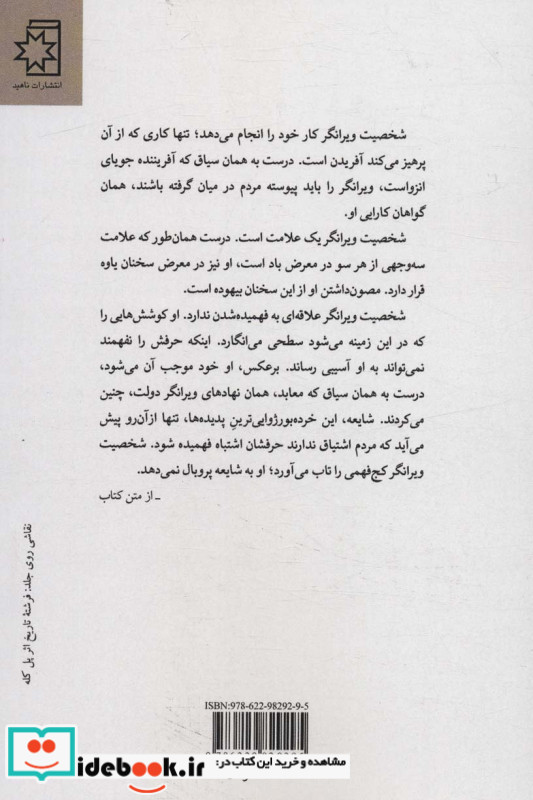 انتشارات ناهید
شخصیت ویرانگر کار خود را انجام می‌دهد؛ تنها کاری که از آن
پرهیز می‌کند آفریدن است. درست به همان سیاق که آفریننده جویای
انزواست، ویرانگر را باید پیوسته مردم در میان گرفته باشند، همان
گواهان کارایی او.
شخصیت ویرانگر یک علامت است. درست همان‌طور که علامت
سه‌وجهی از هر سو در معرض باد است، او نیز در معرض سخنان یاوه
قرار دارد. مصون‌داشتن او از این سخنان بیهوده است.
شخصیت ویرانگر علاقه‌ای به فهمیده‌شدن ندارد. او کوشش‌هایی را
که در این زمینه می‌شود سطحی می‌انگارد. اینکه حرفش را نفهمند
نمی‌تواند به او آسیبی رساند. برعکس، او خود موجب آن می‌شود،
درست به همان سیاق که معابد، همان نهادهای ویرانگر دولت، چنین
می‌کردند. شایعه، این خرده‌بورژوایی‌ترینِ پدیده‌ها، تنها ازآن‌رو پیش
می‌آید که مردم اشتیاق ندارند حرفشان اشتباه فهمیده شود. شخصیت
ویرانگر کج‌فهمی را تاب می‌آورد؛ او به شایعه پروبال نمی‌دهد.
ـ از متن کتاب
نقاشی روی جلد: فرشتهٔ تاریخ اثر پل کله
ISBN:978-622-98292-9-5
مشاهده و خرید این کتاب در:
idebook.ir